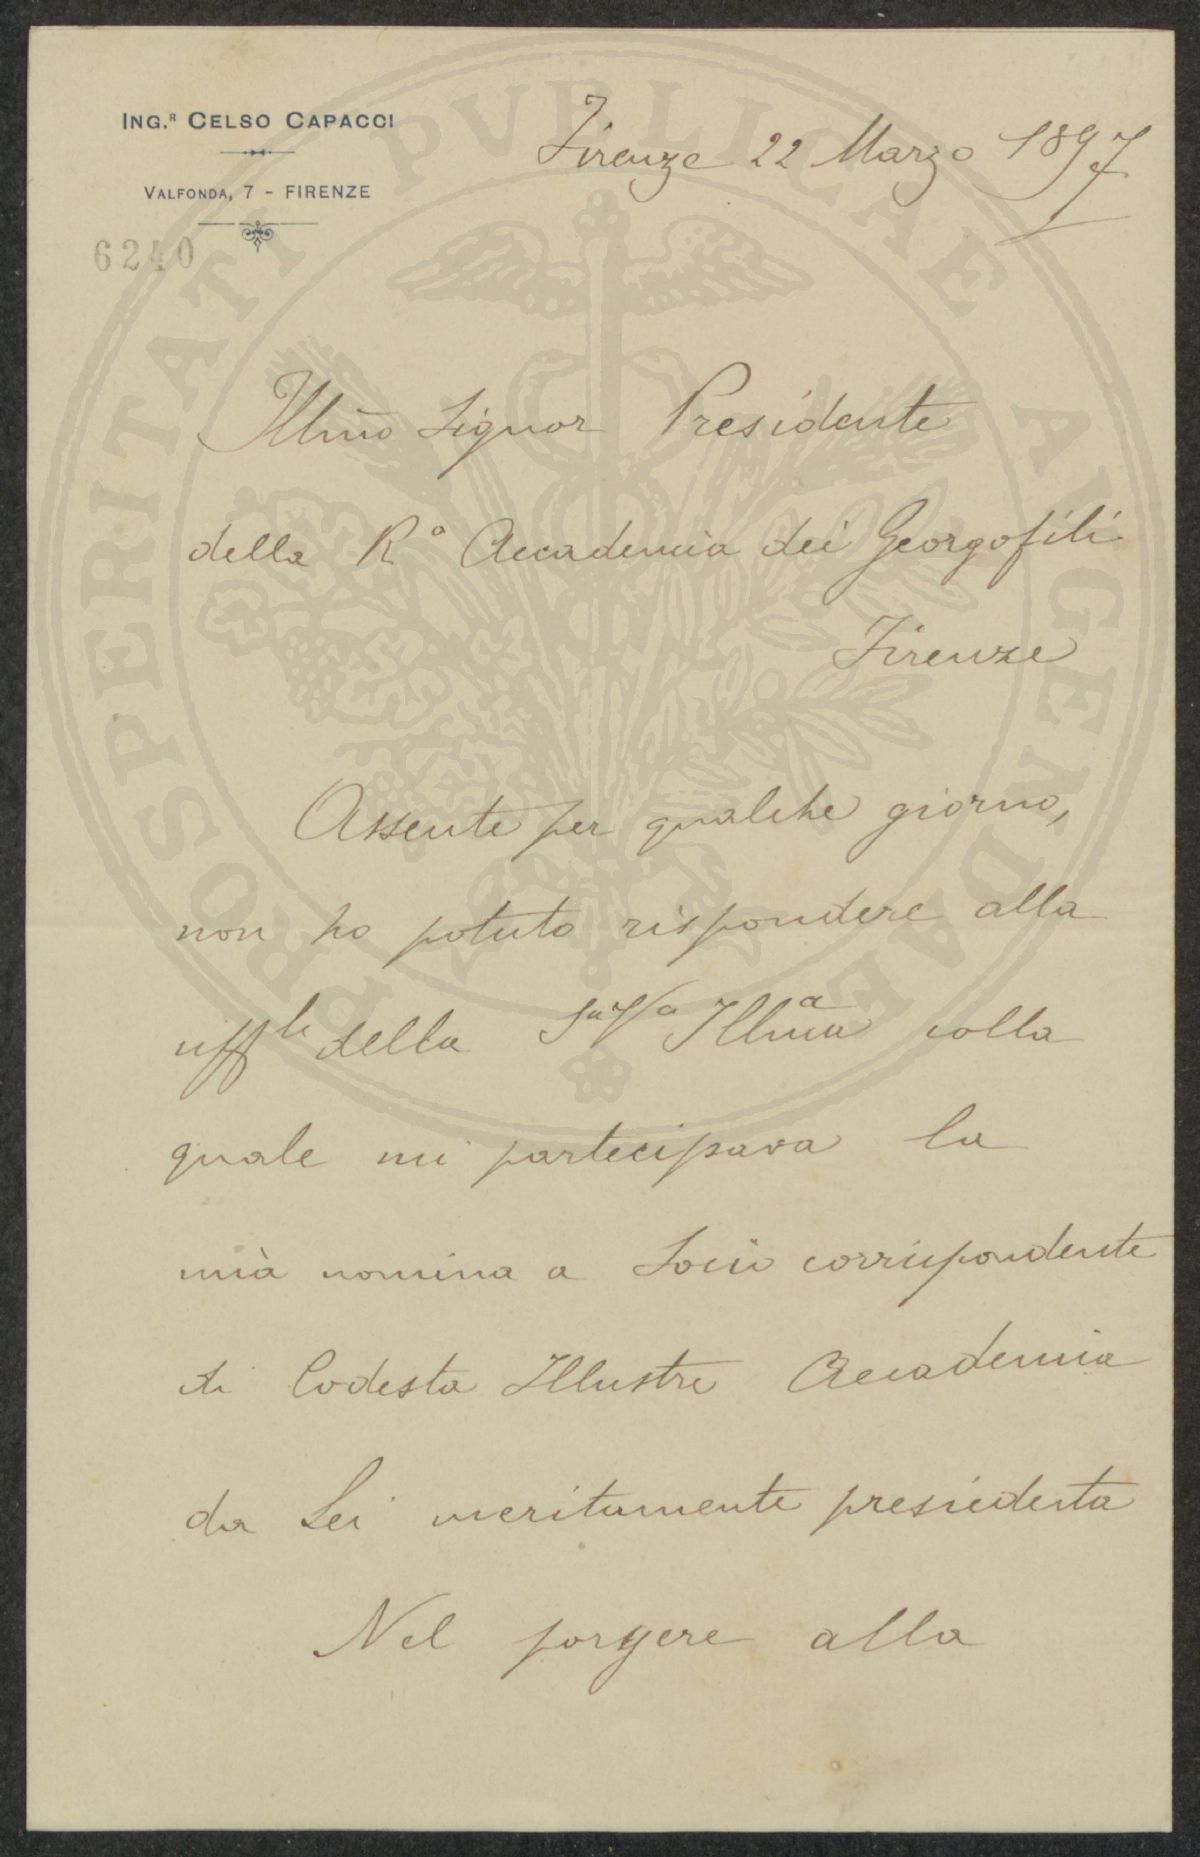 ING.R CELSO CAPACCI
VALFONDA, 7 - FIRENZE
6240
Firenze 22 Marzo 1897
Illmo Signor Presidente
della R.a Accademia dei Georgofili
Firenze
Assente per qualche giorno,
non ho potuto rispondere alla
uffle della Sa Va Illma colla
quale mi partecipava la
mià nomina a Socio corrispondente
di Codesta Illustre Accademia
da Lei meritamente presieduta
Nel porgere alla
PROSPERITATI PVBLICAE AVGENDAE